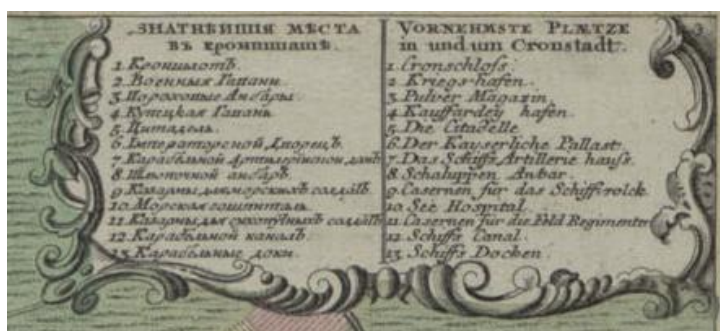 ЗНАТНѢЙШІЯ МѢСТА
въ кронштатѣ.
1. Кроншлотъ.
2. Военныя Гапани.
3. Пороховые Анбары.
4. Купецкая Гапань
5. Цитадель.
6. Імператорской Дворецъ.
7. Карабельной Артилерискои домъ
8. Шлюпочной анбаръ.
9. Казармы для морскихъ солдатъ.
10. Морская гошпиталь.
11. Казармы для сухопутныхъ солдатъ
12. Карабельной каналъ.
13. Карабельные доки.
VORNEHMSTE PLÆTZE
in und um Cronstadt.
1. Cronschloss.
2. Kriegs-hafen.
3. Pulver Magazin
4. Kauffardey hafen.
5. Die Citadelle
6. Der Kayserliche Pallast.
7. Das Schiffs Artillerie hauss.
8. Schaluppen Anbar.
9. Casernen für das Schiffsvolck.
10. See Hospital.
11. Casernen für die Feld Regimenter
12. Schiffs Canal.
13. Schiffs Docken.